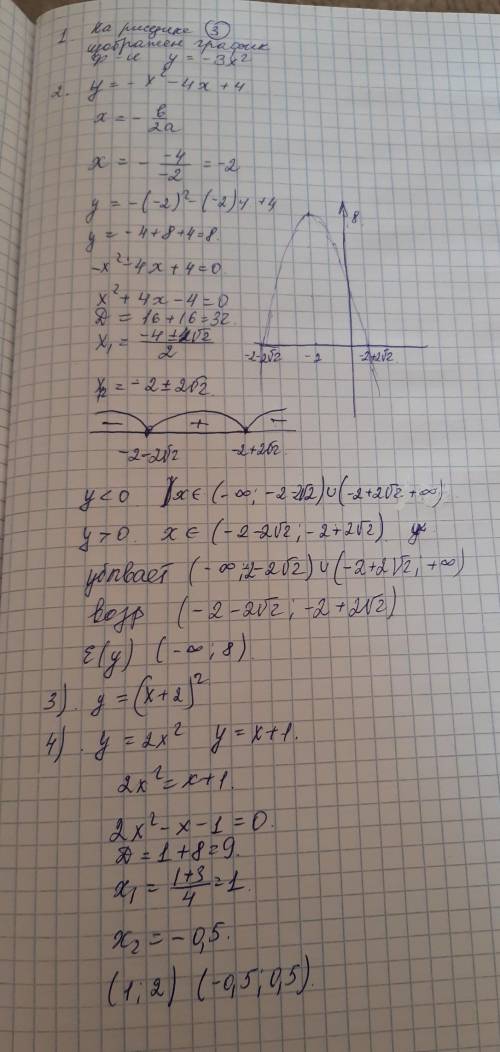 1. На рисунке ③
изображен график
ф-и y = -3x²
2. y = -x² - 4x + 4
x = - в/2a
x = - -4/-2 = -2
y = -(-2)² - (-2)4 + 4
y = -4+8+4=8
-x² - 4x + 4 = 0
x² + 4x - 4 = 0
D = 16 + 16 = 32
x₁ = -4 ± 4√2 / 2
x₂ = -2 ± 2√2
8
-2-2√2 -2 -2+2√2
- + -
-2-2√2 -2+2√2
y < 0 x ∈ (-∞; -2-2√2) ∪ (-2+2√2; +∞)
y > 0 x ∈ (-2-2√2; -2+2√2)
убывает (-∞; -2-2√2) ∪ (-2+2√2; +∞)
возр (-2-2√2; -2+2√2)
E(y) (-∞; 8)
3). y = (x+2)²
4). y = 2x² y = x+1.
2x² = x+1.
2x² - x - 1 = 0.
D = 1+8=9.
x₁ = 1+3/4 = 1.
x₂ = -0,5.
(1; 2) (-0,5; 0,5).